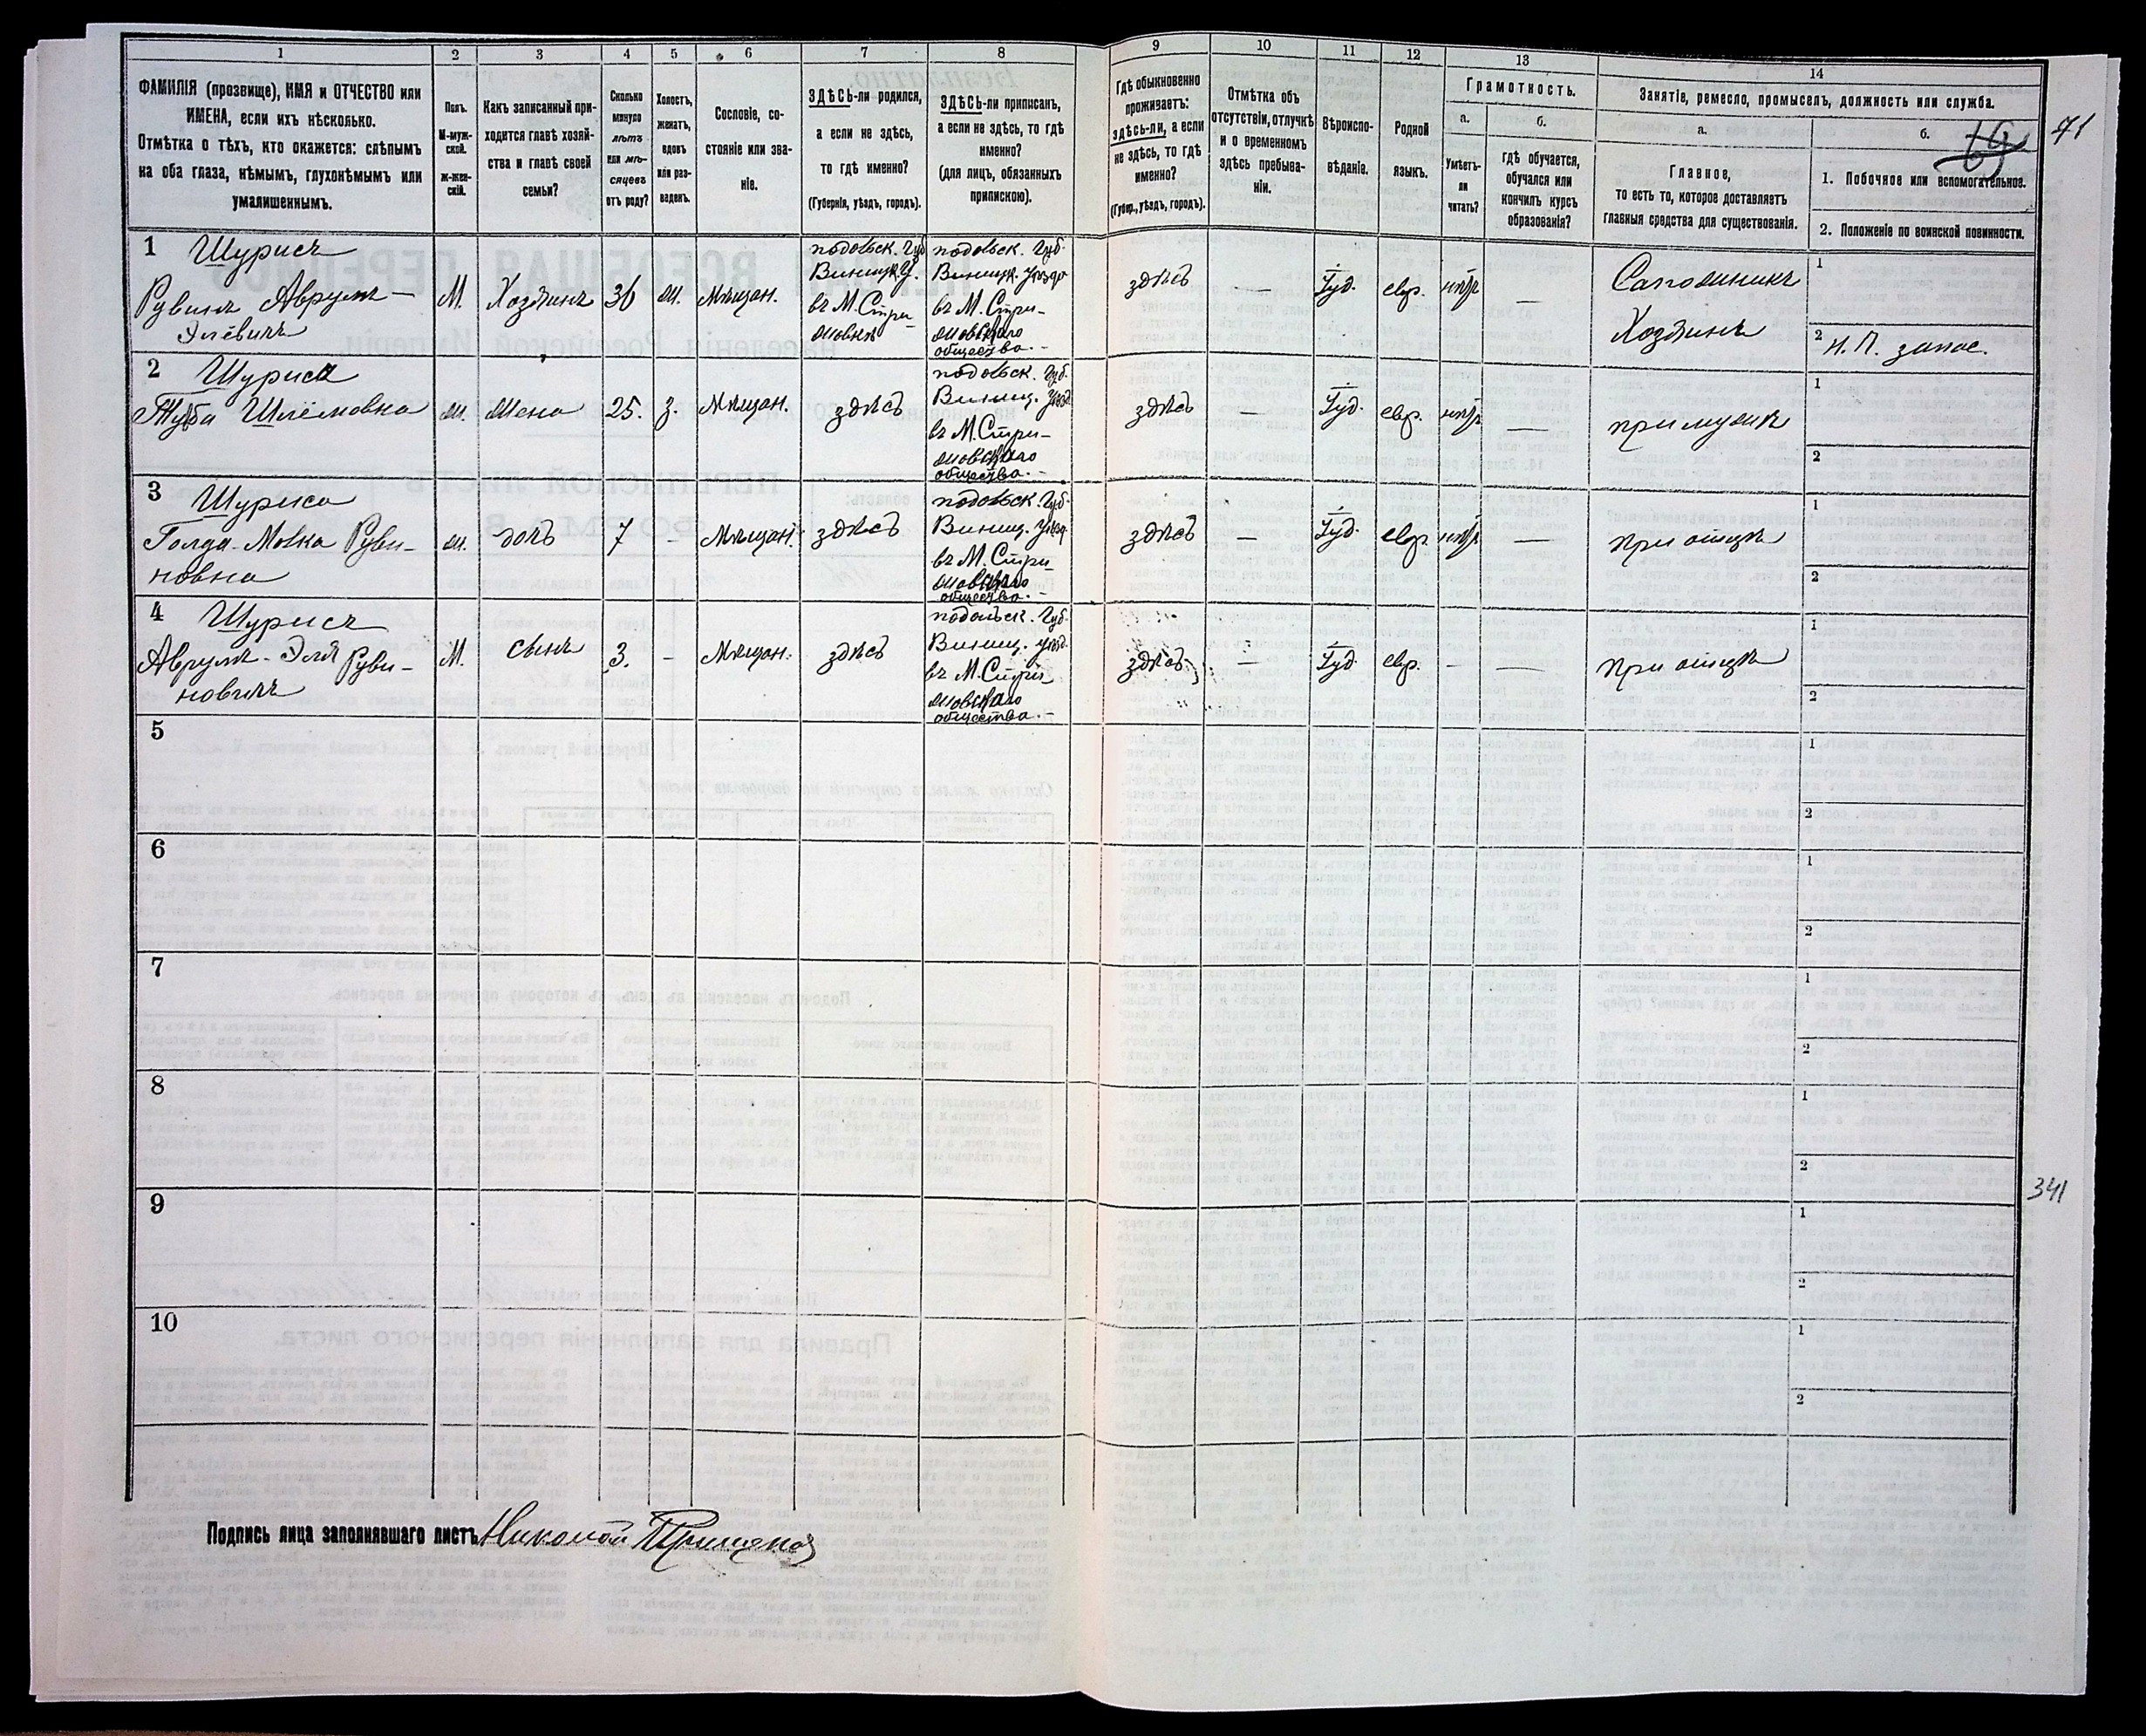 1 2 3 4 5 6 7 8 9 10 11 12 13 14
ФАМИЛІЯ (прозвище), ИМЯ и ОТЧЕСТВО или
ИМЕНА, если ихъ нѣсколько.
Отмѣтка о тѣхъ, кто окажется: слѣпымъ
на оба глаза, нѣмымъ, глухонѣмымъ или
умалишеннымъ.
Полъ.
М-муж-
ской.
Ж-жен-
скій.
Какъ записанный при-
ходится главѣ хозяй-
ства и главѣ своей
семьи?
Сколько
минуло
лѣтъ
или мѣ-
сяцевъ
отъ роду?
Холостъ,
женатъ,
вдовъ
или раз-
веденъ.
Сословіе, со-
стояніе или зва-
ніе.
ЗДѢСЬ-ли родился,
а если не здѣсь,
то гдѣ именно?
(Губернія, уѣздъ, городъ).
ЗДѢСЬ-ли приписанъ,
а если не здѣсь, то гдѣ
именно?
(для лицъ, обязанныхъ
припискою).
Гдѣ обыкновенно
проживаетъ:
здѣсь-ли, а если
не здѣсь, то гдѣ
именно?
(Губер., уѣздъ, городъ).
Отмѣтка объ
отсутствіи, отлучкѣ
и о временномъ
здѣсь пребыва-
ніи.
Вѣроиспо-
вѣданіе.
Родной
языкъ.
Грамотность.
а.
Умѣетъ-
ли
читать?
б.
гдѣ обучается,
обучался или
кончилъ курсъ
образованія?
Занятіе, ремесло, промыселъ, должность или служба.
а.
Главное,
то есть то, которое доставляетъ
главныя средства для существованія.
б.
1. Побочное или вспомогательное.
2. Положеніе по воинской повинности.
69
71
1 Шурисъ
Рувинъ Аврумъ-
Элёвичъ
М. Хозяинъ 36 ж. Мѣщан.
подольск. Губ
Виницк. У.
въ М. Стри-
жовкѣ
подольск. Губ.
Виницк. Уѣзда
въ М. Стри-
жовскаго
общества.-
здѣсь — Іуд. евр. нѣтъ —
Сапожникъ
Хозяинъ
1
2 Н. П. запас.
2 Шуриса
Туба Шлёмовна
ж. Жена 25. з. Мѣщан. здѣсь
подольск. Губ.
Виниц. Уѣзд.
въ М. Стри-
жовскаго
общества.-
здѣсь — Іуд. евр. нѣтъ —
при мужѣ
1
2
3 Шуриса
Голда-Мовка Руви-
новна
ж. дочь 7 - Мѣщан. здѣсь
подольск. Губ.
Виниц. Уѣзд.
въ М. Стри
жовскаго
общества.-
здѣсь — Іуд. евр. нѣтъ —
при отцѣ
1
2
4 Шурисъ
Аврумъ-Эля Руви-
новичъ
М. сынъ 3. - Мѣщан. здѣсь
подольск. Губ.
Виниц. Уѣзд.
въ М. Стри
жовскаго
общества.-
здѣсь — Іуд. евр. - —
при отцѣ
1
2
5
1
2
6
1
2
7
1
2
8
1
2
9
1
2
341
10
1
2
Подпись лица заполнявшаго листъ Николай